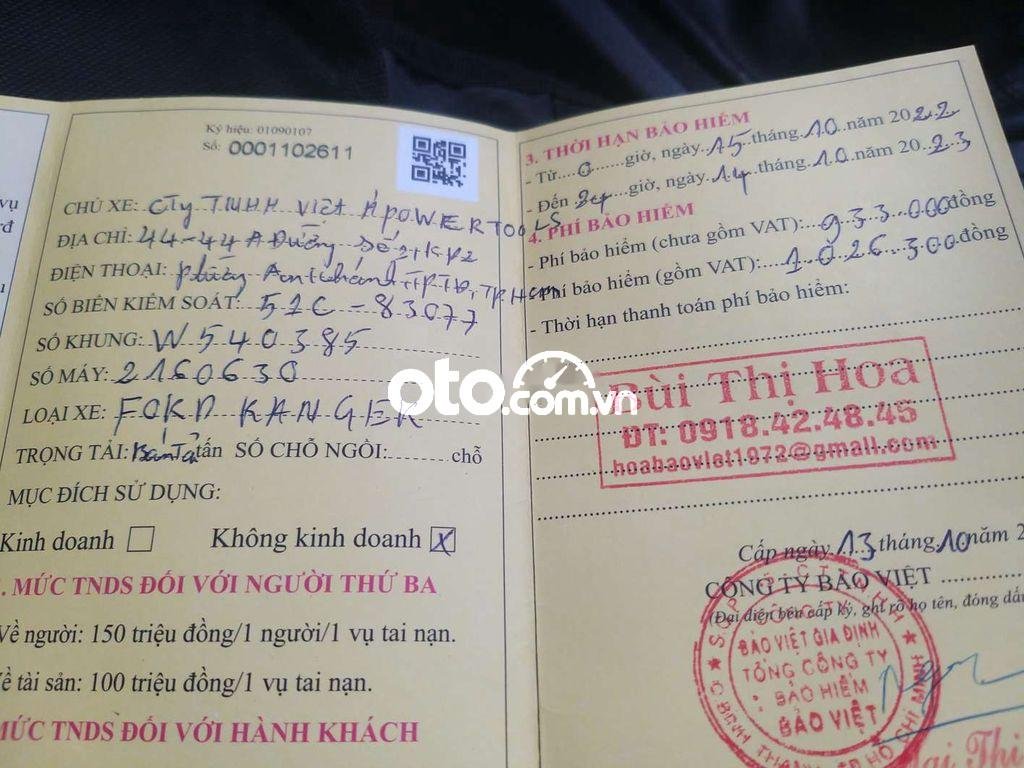 Ký hiệu: 01090107
Số: 0001102611
CHỦ XE: Cty TNHH Việt Á POWERTOOLS
ĐỊA CHỈ: 44-44A Đường Số 2, KP2
ĐIỆN THOẠI: phường An Khánh, TP TĐ, TP HCM
SỐ BIỂN KIỂM SOÁT: 51C-83077
SỐ KHUNG: W540385
SỐ MÁY: 2160630
LOẠI XE: FORD RANGER
TRỌNG TẢI: bán Tải tấn SỐ CHỖ NGỒI: chỗ
MỤC ĐÍCH SỬ DỤNG:
Kinh doanh ☐ Không kinh doanh ☒
. MỨC TNDS ĐỐI VỚI NGƯỜI THỨ BA
Về người: 150 triệu đồng/1 người/1 vụ tai nạn.
ề tài sản: 100 triệu đồng/1 vụ tai nạn.
MỨC TNDS ĐỐI VỚI HÀNH KHÁCH
3. THỜI HẠN BẢO HIỂM
- Từ 0 giờ, ngày 15 tháng 10 năm 2022
- Đến 24 giờ, ngày 14 tháng 10 năm 2023
4. PHÍ BẢO HIỂM
- Phí bảo hiểm (chưa gồm VAT): 933.000 đồng
- Phí bảo hiểm (gồm VAT): 1.026.300 đồng
- Thời hạn thanh toán phí bảo hiểm:
Bùi Thị Hoa
ĐT: 0918.42.48.45
hoabaoviet1972@gmail.com
Cấp ngày 13 tháng 10 năm 2
CÔNG TY BẢO VIỆT
(Đại diện bên cấp ký, ghi rõ họ tên, đóng dấu
CÔNG TY
BẢO VIỆT GIA ĐỊNH
TỔNG CÔNG TY
BẢO HIỂM
BẢO VIỆT
Q.BÌNH THẠNH TP HỒ CHÍ MINH
oto.com.vn
vụ